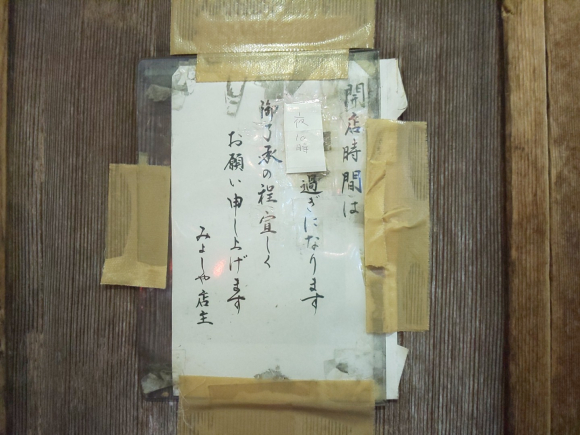 開店時間は
夜 時
過ぎになります
御了承の程宜しく
お願い申し上げます
みよしや店主